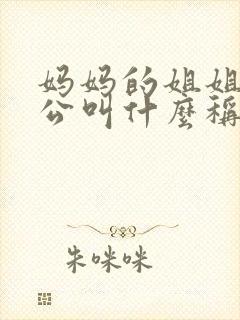 妈妈的姐姐
公叫什麼稱
朱咪咪